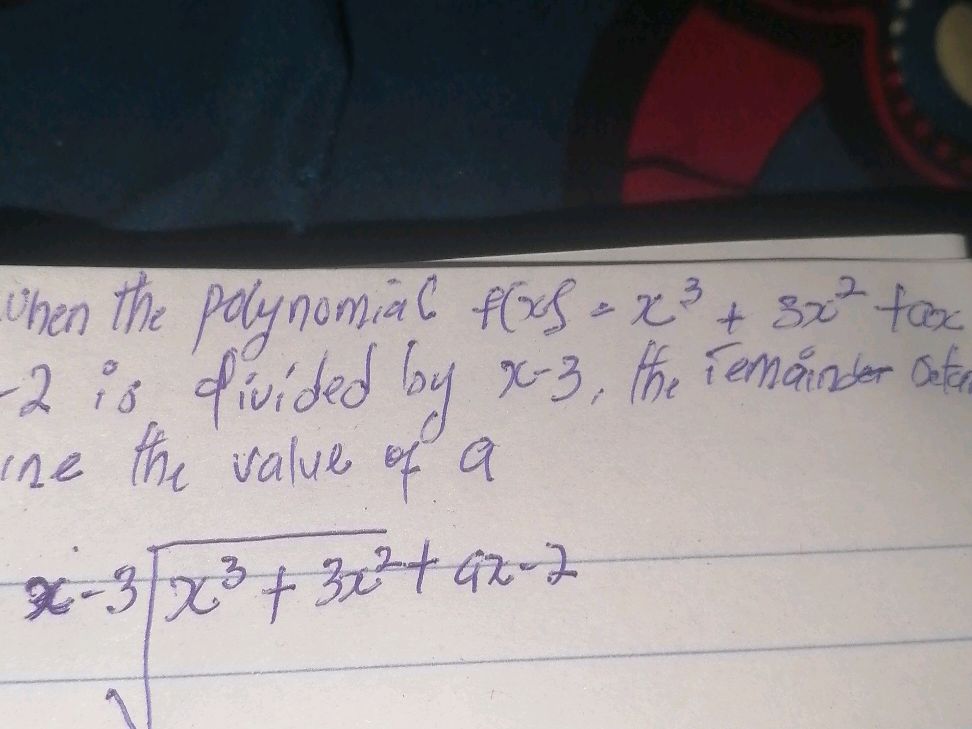 when the polynomial f(x) = x³ + 3x² + ax
-2 is divided by x-3, the remainder
ine the value of a
x-3 x³ + 3x² + ax - 2